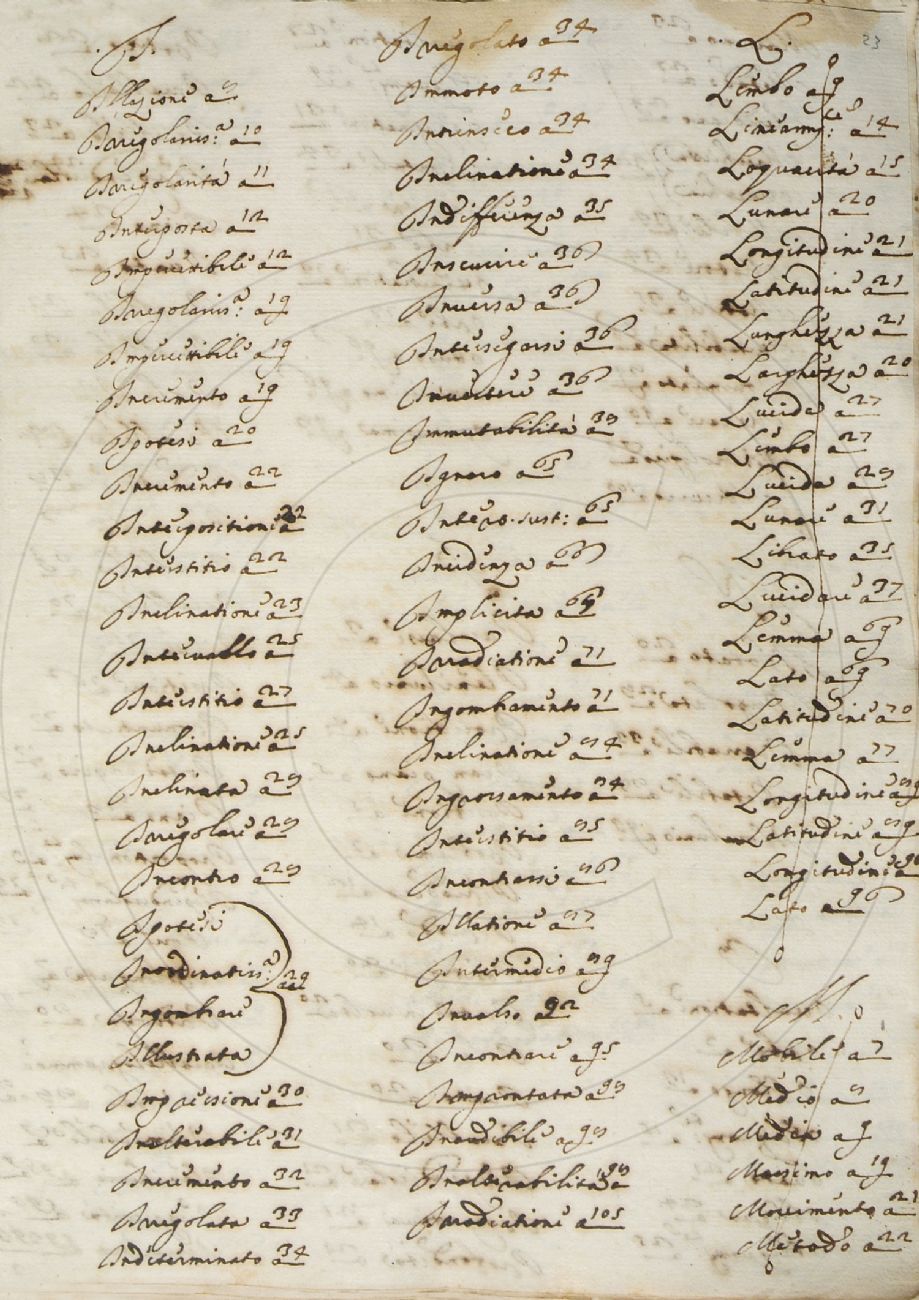 I.
Illazione a 9
Irregolariss.a a 10
Irregolarità a 11
Interposta a 12
Impercetibile a 12
Irregolariss.a: a 19
Impercetibile a 19
Incremento a 19
Ipotesi a 20
Incremento a 22
Interpositione a 22
Interstitio a 22
Inclinatione a 23
Intervallo a 25
Interstitio a 27
Inclinatione a 25
Inclinata a 29
Irregolare a 29
Incontro a 29
Ipotesi
Inordinatiss.a a 29
Ingombrare
Illustrata
Impressione a 30
Inalterabile a 31
Incremento a 32
Irregolata a 33
Indeterminato a 34
Irregolato a 34
Immoto a 34
Intrinseco a 34
Inclinatione a 34
Indifferenza a 35
Inserire a 36
Inversa a 36
Intersegarsi a 36
Invertere a 36
Immutabilità a 39
Ignoro a 65
a 65
Incidenza a 66
Implicita a 69
Irradiatione a 71
Ingombramento a 71
Inclinatione a 94
a 94
Interstitio a 95
Incontrarsi a 96
Illatione a 97
Intermedio a 99
Invalso a 92
Incontrare a 95
Improntata a 99
Inaudibile a 99
Inalterabilità a 99
Irradiatione a 105
L.
23
Limbo a 9
a 14
Loquacità a 15
Lunare a 20
Longitudine a 21
Latitudine a 21
Lunghezza a 21
Larghezza a 20
Lucida a 27
Limbo a 27
Lucida a 29
Lunare a 31
Librato a 35
Lucidare a 37
Lemma a 69
Lato a 69
Latitudine a 70
Lemma a 77
Longitudine a 89
Latitudine a 89
Longitudine a 90
Lato a 96
M.
Mobile a 7
Medio a 9
Media a 9
Massimo a 19
Movimento a 21
Metodo a 22